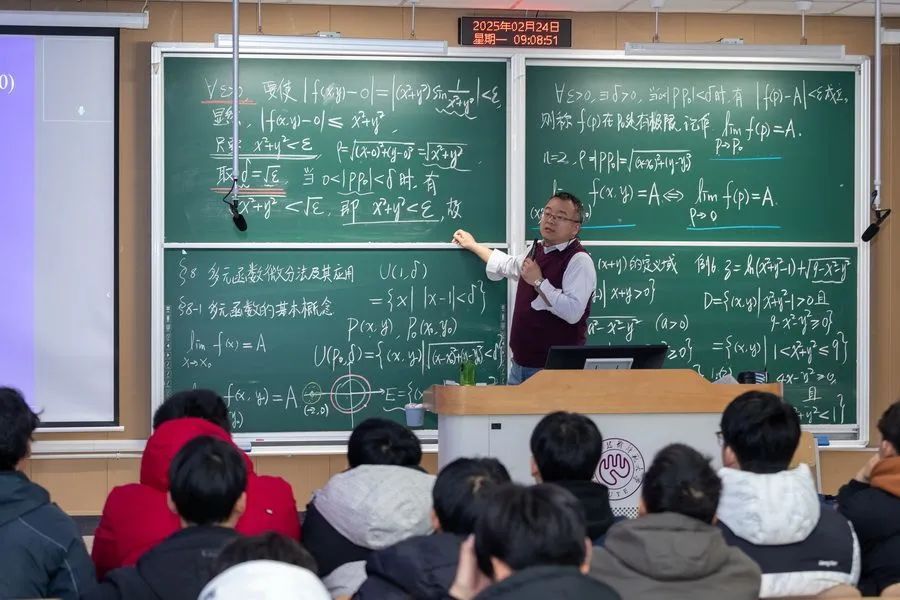 0)
2025年02月24日
星期一 09:08:51
∀ε>0, 要使 |f(x,y)-0|=|(x²+y²)sin 1/(x²+y²)|<ε,
显然, |f(x,y)-0|≤ x²+y²,
只要 x²+y²<ε ρ=√((x-0)²+(y-0)²)=√(x²+y²).
取 δ=√ε, 当 0<|PP₀|<δ 时, 有
√(x²+y²)<√ε, 即 x²+y²<ε, 故
∀ε>0, ∃δ>0, 当0<|PP₀|<δ时, 有 |f(P)-A|<ε成立,
则称 f(P)在P₀处有极限, 记作 lim P→P₀ f(P)=A.
n=2, ρ=|PP₀|=√((x-x₀)²+(y-y₀)²)
f(x,y)=A ⇔ lim ρ→0 f(P)=A.
§8 多元函数微分法及其应用 U(1,δ)
={x| |x-1|<δ}
§8-1 多元函数的基本概念
P(x,y), P₀(x₀,y₀)
lim x→x₀ f(x)=A
U(P₀,δ)={(x,y)|√((x-x₀)²+(y-y₀)²)<δ
f(x,y)=A (-2,0) E={
(x+y)的定义域
| x+y>0}
a²-x²-y² (a>0)
≥0}
例6 z=ln(x²+y²-1)+√(9-x²-y²)
D={(x,y)|x²+y²-1>0 且
9-x²-y²≥0}
={(x,y)|1<x²+y²≤9}
4x-y²≥0,
且
+y²<1}